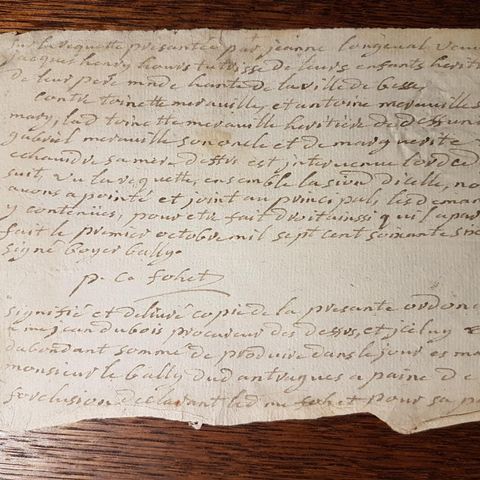 sur la requette présantée par jeanne longeual veuv
jacques henry hours tutrisse de leurs enfants heriti
de leur pere mnde hante de la ville de besse
contre toinette merauille, et antoine merauille s
mary, lad toinette merauille heritiere de deffun
gabriel merauille son oncle et de marguerite
echaudre sa mere dessus est interuenue lord
suit, vu la requette, ensemble la sion dicelle, no
auons apointé et joint au principal, les deman
y contenues, pour etre fait droit ainssi qu il apar
fait le premier octobre mil sept cent soixante six
signé boyer bally.
p. co fohet
signifié et deliuré copie de la presante ordon
a me jean dubois procureur des dessus, et jceluy
dabondant sommé de produire dans le jour es ma
monsieur le bally dud antragues a paine de
forclusion declarant led me fohet pour sa p